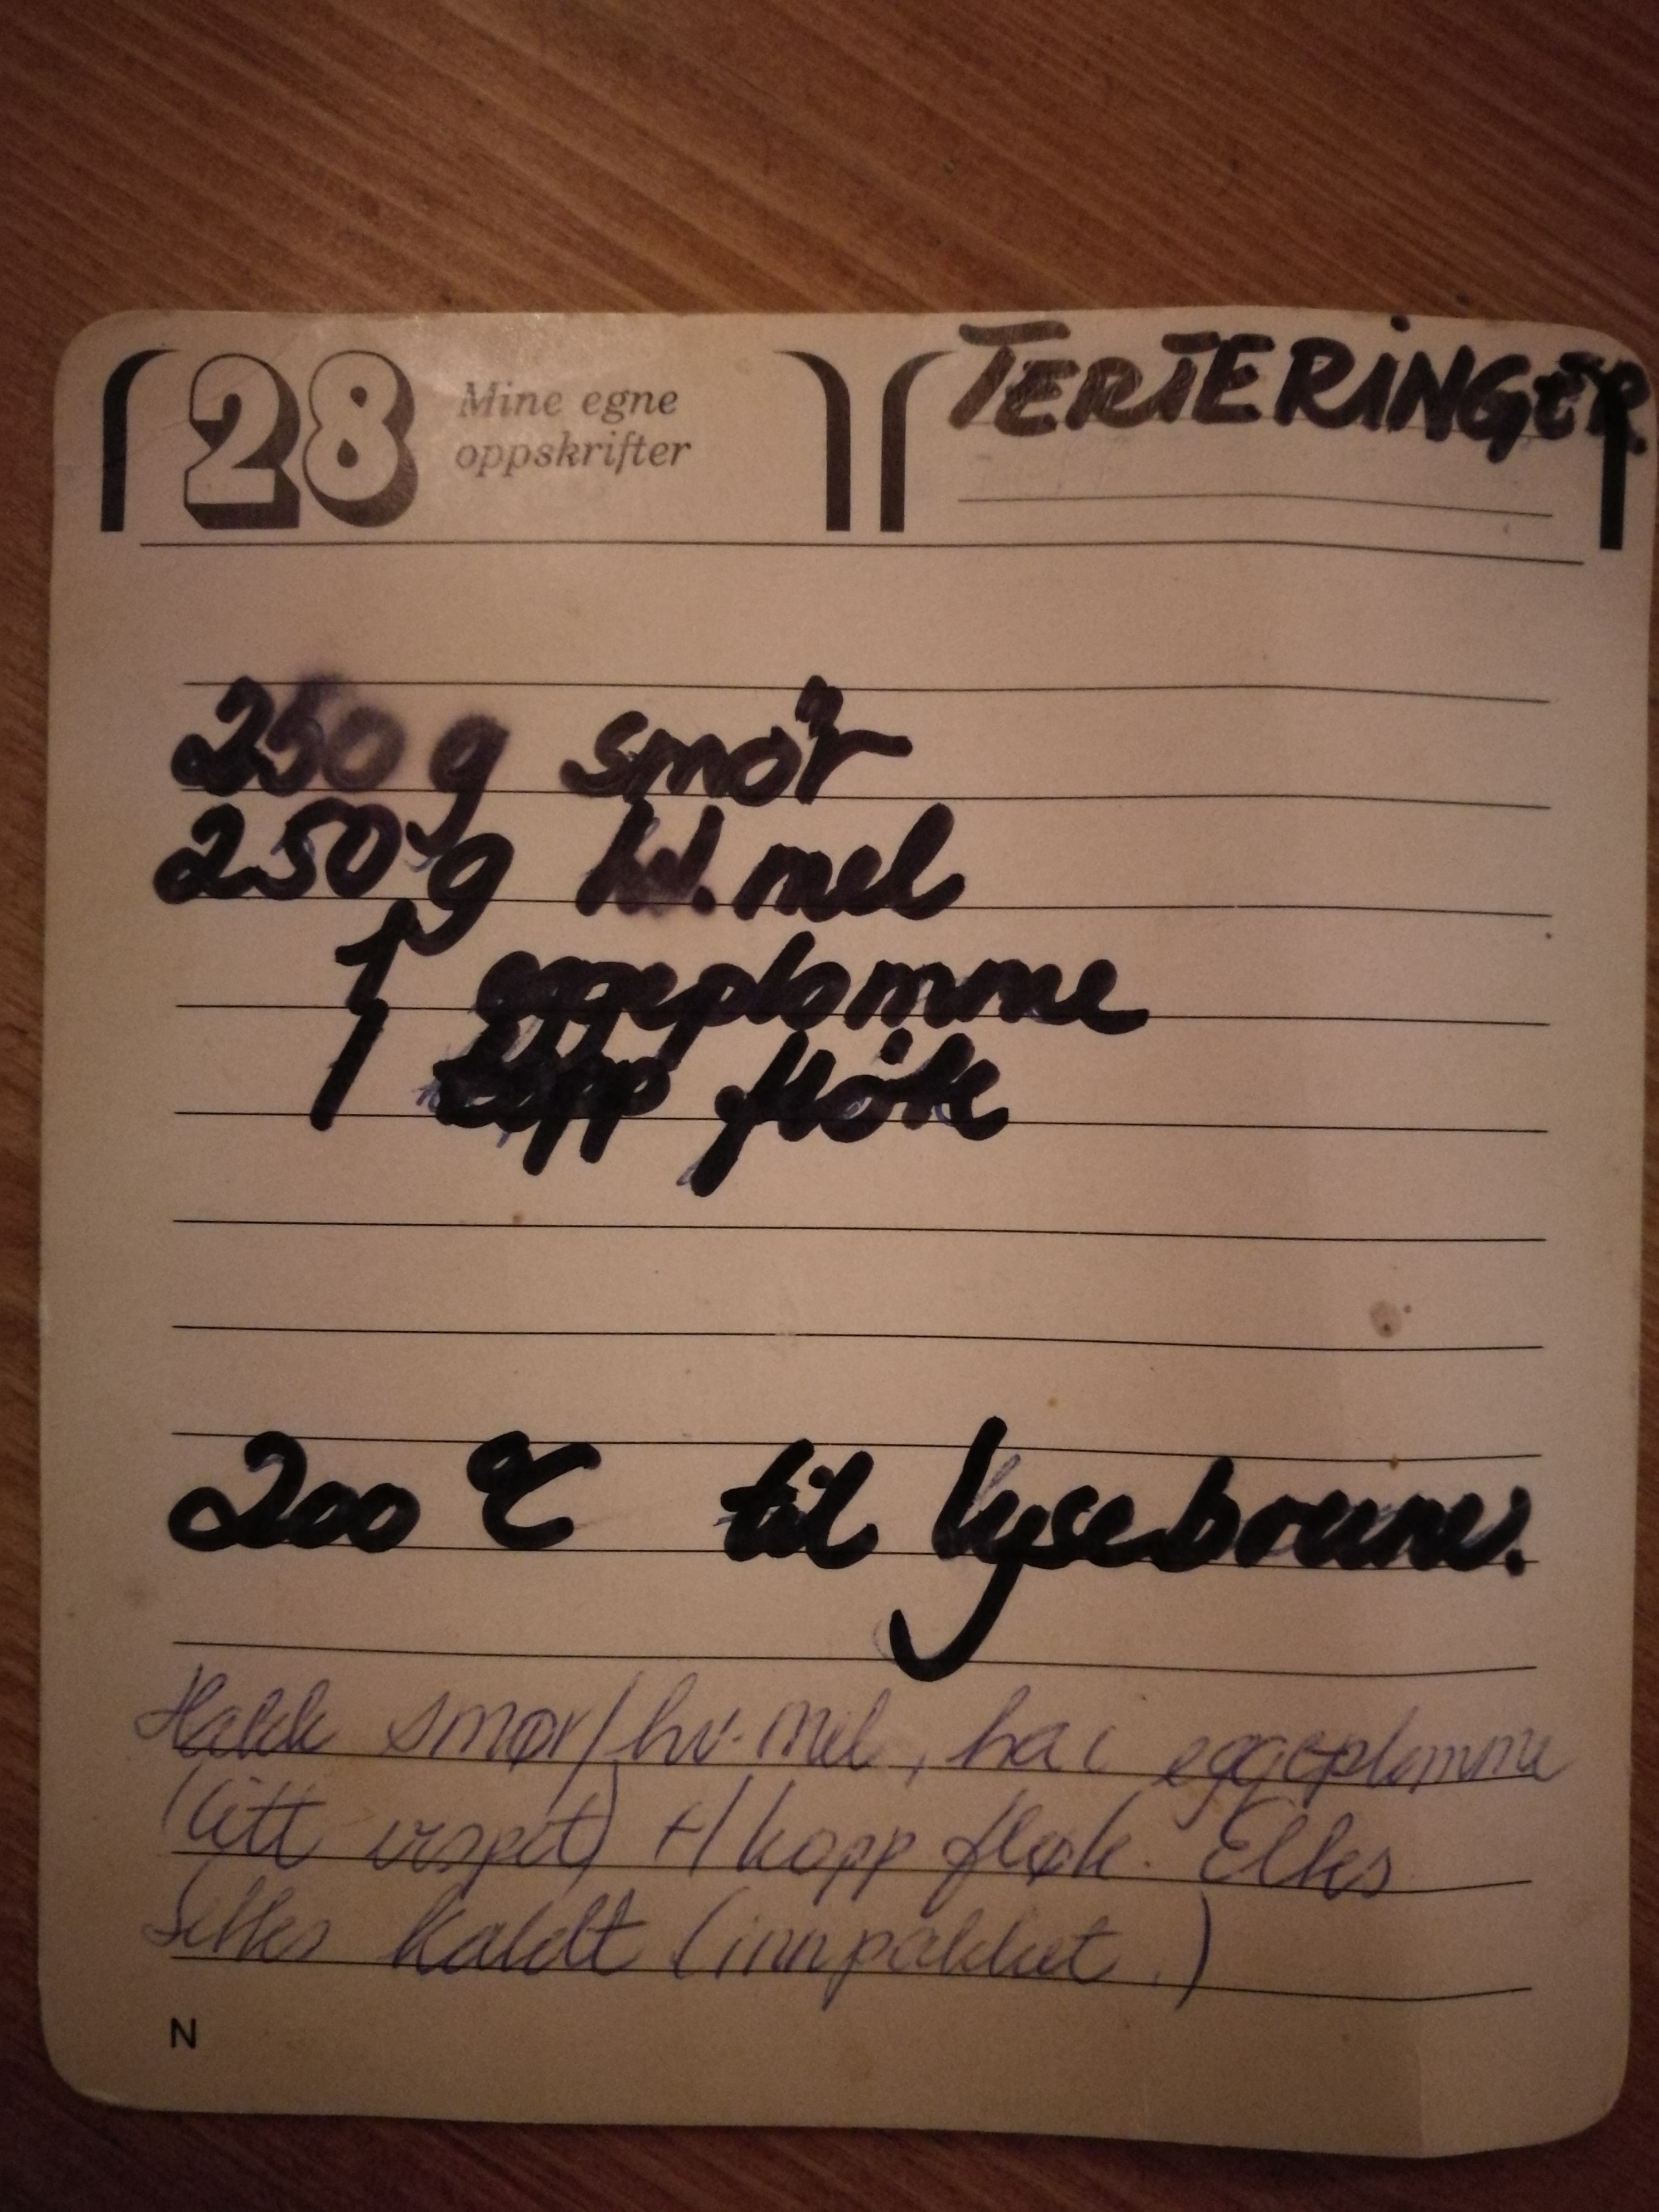 28 Mine egne
oppskrifter
TERTERINGER
250 g smør
250 g hv. mel
1 eggeplomme
1 kopp fløte
200 °C til lysebrune.
Hakk smør/hv. mel, ha i eggeplomme
(litt vispet) + 1 kopp fløte. Eltes
Settes kaldt (innpakket.)
N